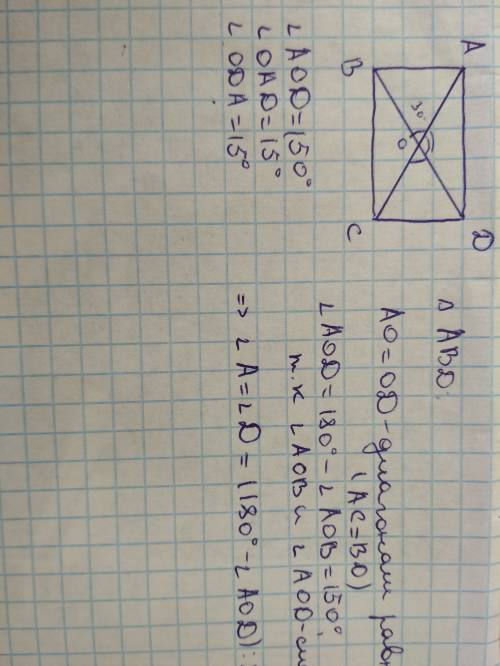 A
D
B
C
30°
O
∠AOD=150°
∠OAD=15°
∠ODA=15°
Δ ABD:
AO=OD-диагонали равн
(AC=BD)
∠AOD=180°-∠AOB=150°,
т.к ∠AOB и ∠AOD-см
=> ∠A=∠D=(180°-∠AOD):